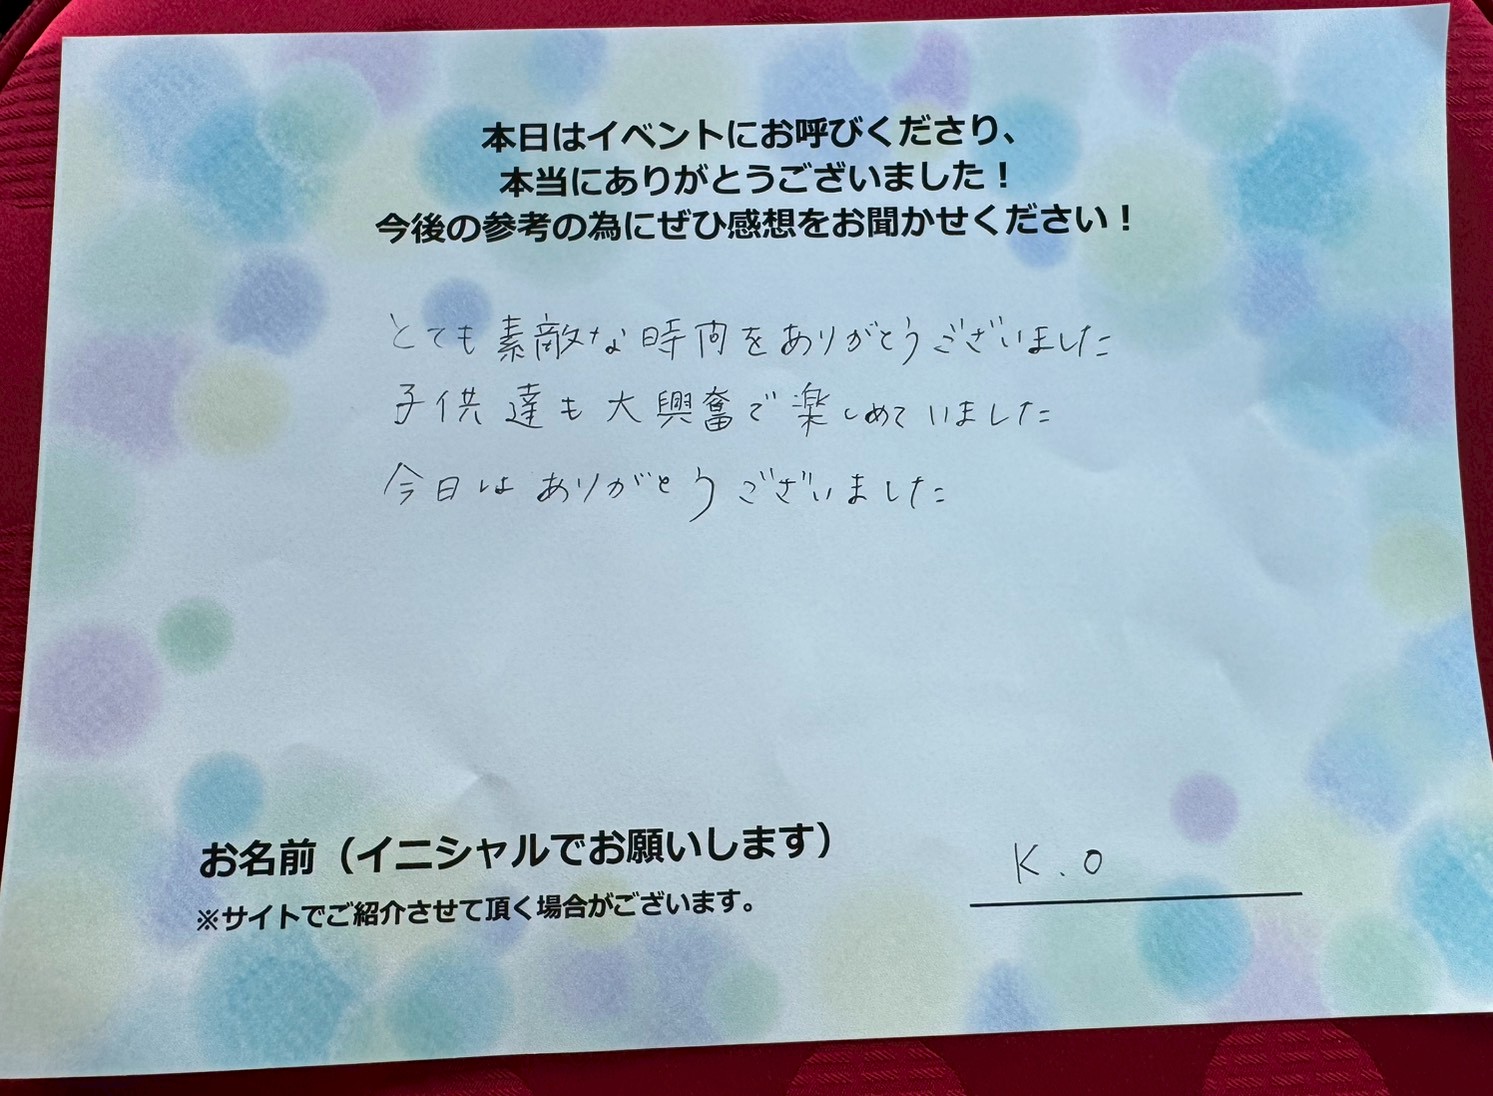 本日はイベントにお呼びくださり、
本当にありがとうございました！
今後の参考の為にぜひ感想をお聞かせください！
とても素敵な時間をありがとうございました
子供達も大興奮で楽しめていました
今日はありがとうございました
お名前（イニシャルでお願いします）
K.O
※サイトでご紹介させて頂く場合がございます。